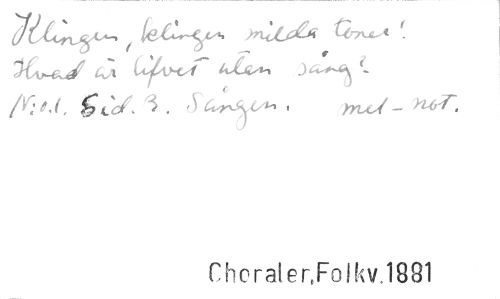 Klingen, klingen milda toner!
Hvad är lifvet utan sång?
N:o 1. Sid. 3. Sången. mel-not.
Choraler,Folkv.1881